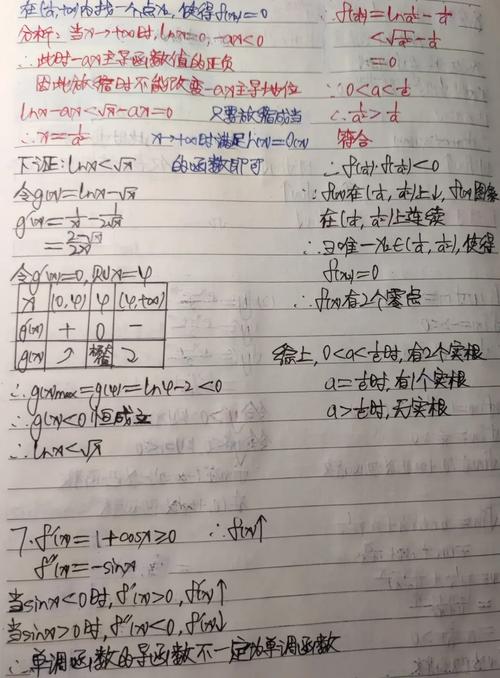 在(1/a,+∞)内找一个点x₂, 使得f(x₂)=0
分析: 当x→+∞时, lnx=0, -ax<0
∴此时-ax主导函数值的正负
因此放缩时不能改变-ax主导地位
lnx-ax<√x-ax=0 只要放缩成当
∴x=1/a² x→+∞时满足h(x)=O(x)
下证: lnx<√x 的函数即可
令g(x)=lnx-√x
g'(x)=1/x-1/(2√x)
=(2-√x)/(2x)
令g'(x)=0, 则x=4
x (0,4) 4 (4,+∞)
g'(x) + 0 -
g(x) ↗ 极大值 ↘
∴g(x)max=g(4)=ln4-2<0
∴g(x)<0恒成立
∴lnx<√x
∴f(1/a²)=ln1/a²-1/a
<√(1/a²)-1/a
=0
∵0<a<1/e
∴1/a²>1/a
符合
∴f(1/a)·f(1/a²)<0
∵f(x)在(1/a,1/a²)上↓, f(x)图象
在(1/a,1/a²)上连续
∴∃唯一x₂∈(1/a,1/a²), 使得
f(x₂)=0
∴f(x)有2个零点
综上, 0<a<1/e时, 有2个实根
a=1/e时, 有1个实根
a>1/e时, 无实根
7. f'(x)=1+cosx≥0 ∴f(x)↑
f''(x)=-sinx
当sinx<0时, f''(x)>0, f'(x)↑
当sinx>0时, f''(x)<0, f'(x)↓
∴单调函数的导函数不一定为单调函数